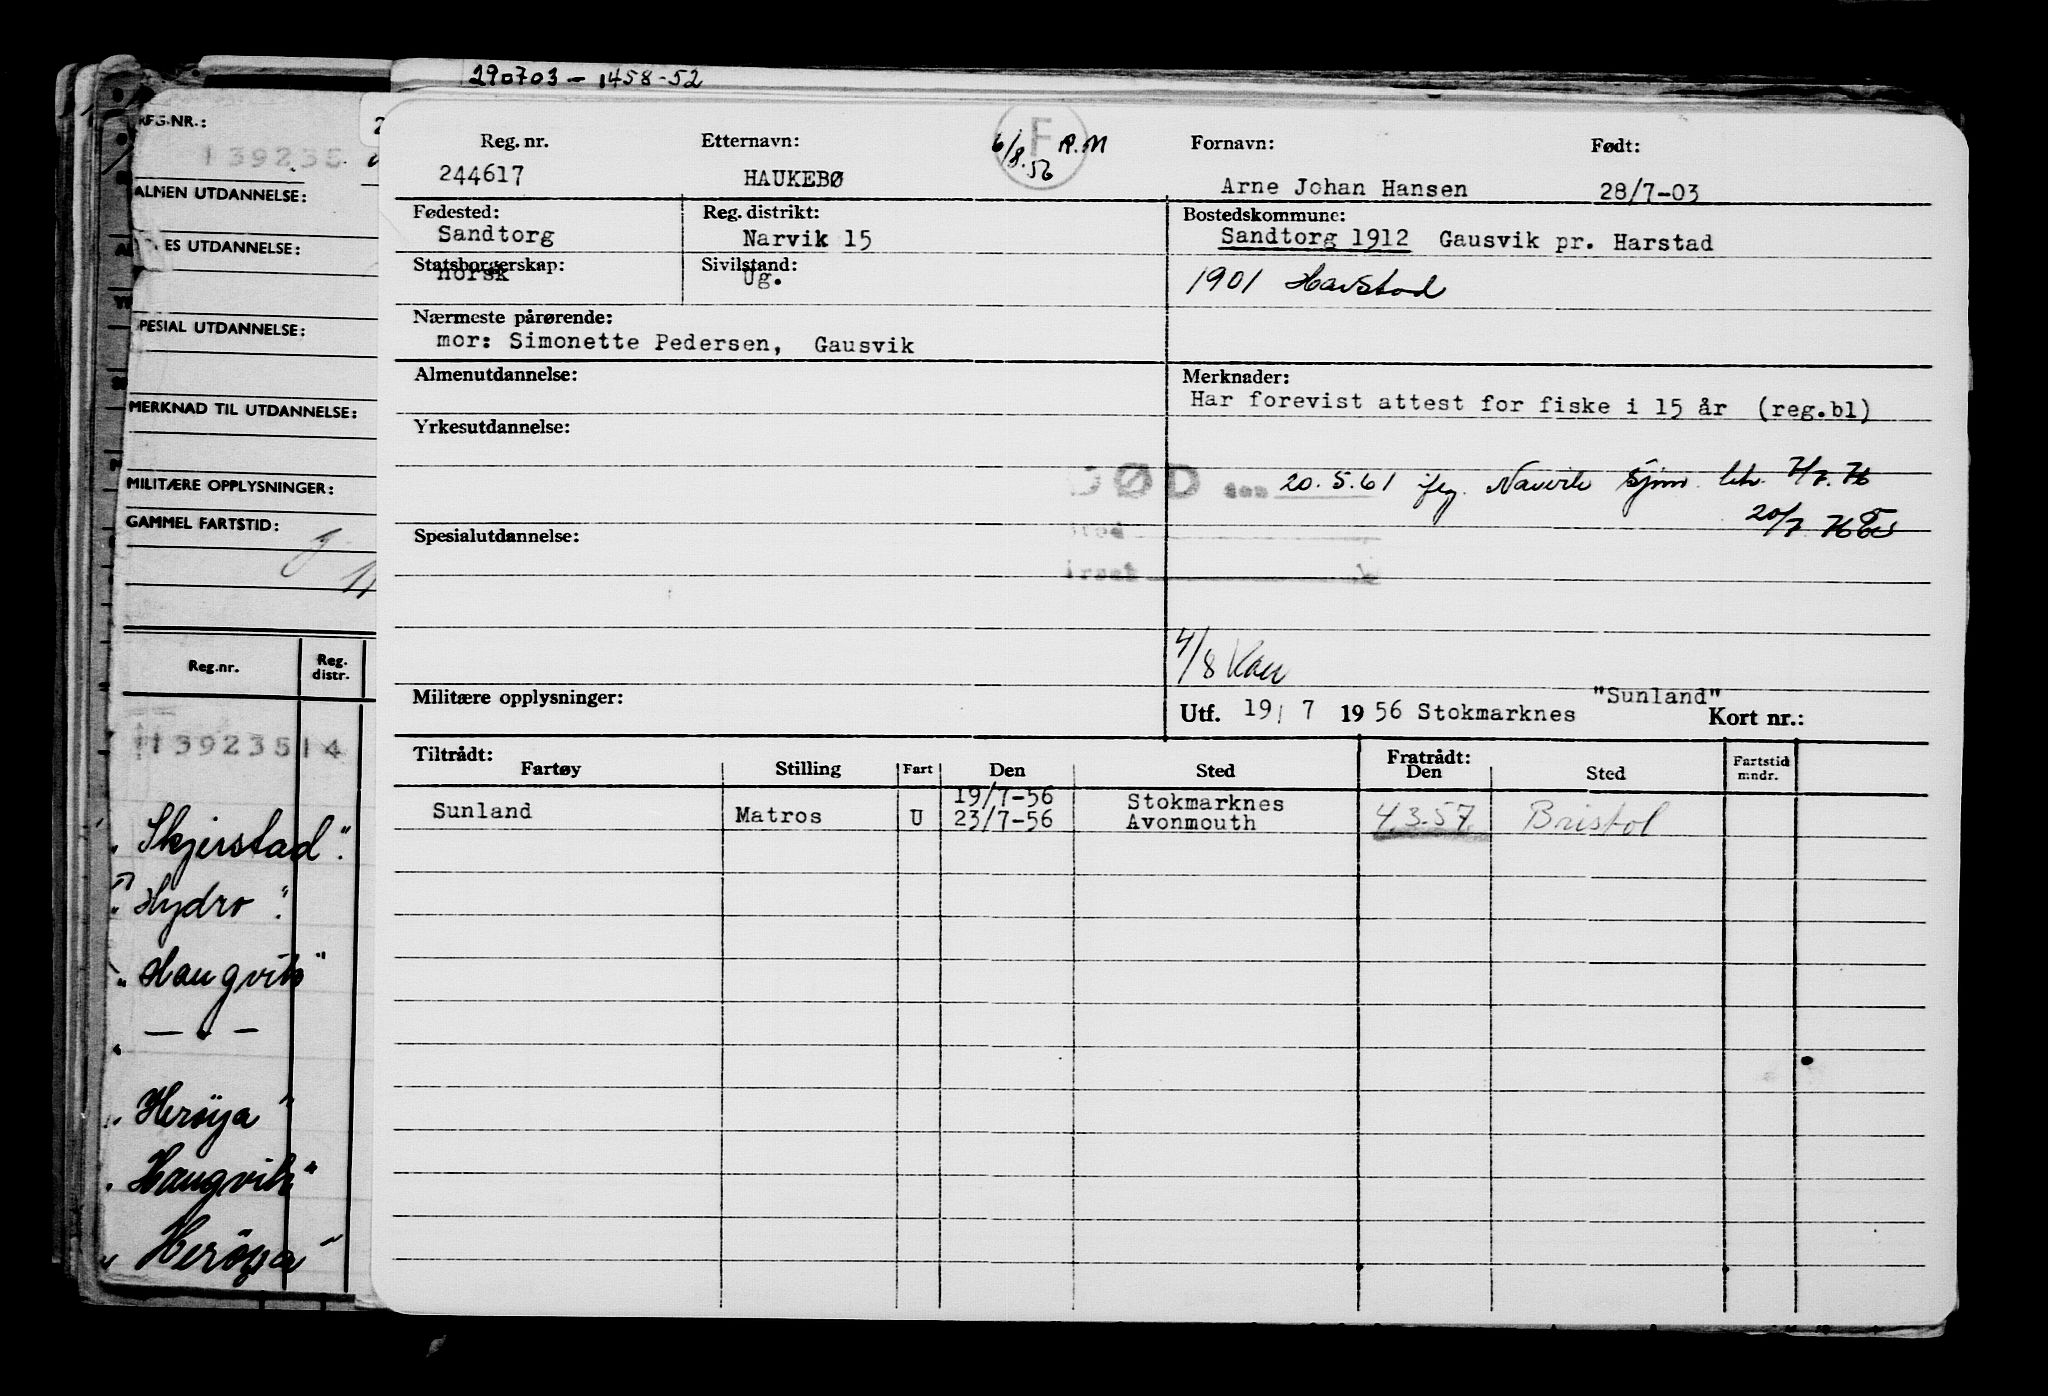 290703 - 1458-52
REG.NR.:
139235
ALMEN UTDANNELSE:
ES UTDANNELSE:
PESIAL UTDANNELSE:
MERKNAD TIL UTDANNELSE:
MILITÆRE OPPLYSNINGER:
GAMMEL FARTSTID:
Reg.nr. Reg. distr.
139235 14
"Skjerstad".
"Hydro".
"Haugvik"
— " —
"Herøya"
"Haugvik"
"Herøya"
Reg. nr. Etternavn: F 6/8.56 P.M Fornavn: Født:
244617 HAUKEBØ Arne Johan Hansen 28/7-03
Fødested: Reg. distrikt: Bostedskommune:
Sandtorg Narvik 15 Sandtorg 1912 Gausvik pr. Harstad
Statsborgerskap: Sivilstand:
norsk Ug. 1901 Harstad
Nærmeste pårørende:
mor: Simonette Pedersen, Gausvik
Almenutdannelse: Merknader:
Har forevist attest for fiske i 15 år (reg.bl)
Yrkesutdannelse:
DØD den 20.5.61 Sjøm.
20/7
Spesialutdannelse:
4/8
Militære opplysninger: Utf. 19/ 7 1956 Stokmarknes "Sunland" Kort nr.:
Tiltrådt: Fratrådt:
Fartøy Stilling Fart Den Sted Den Sted Fartstid mndr.
19/7-56 Stokmarknes
Sunland Matros U 23/7-56 Avonmouth 4.3.57. Bristol